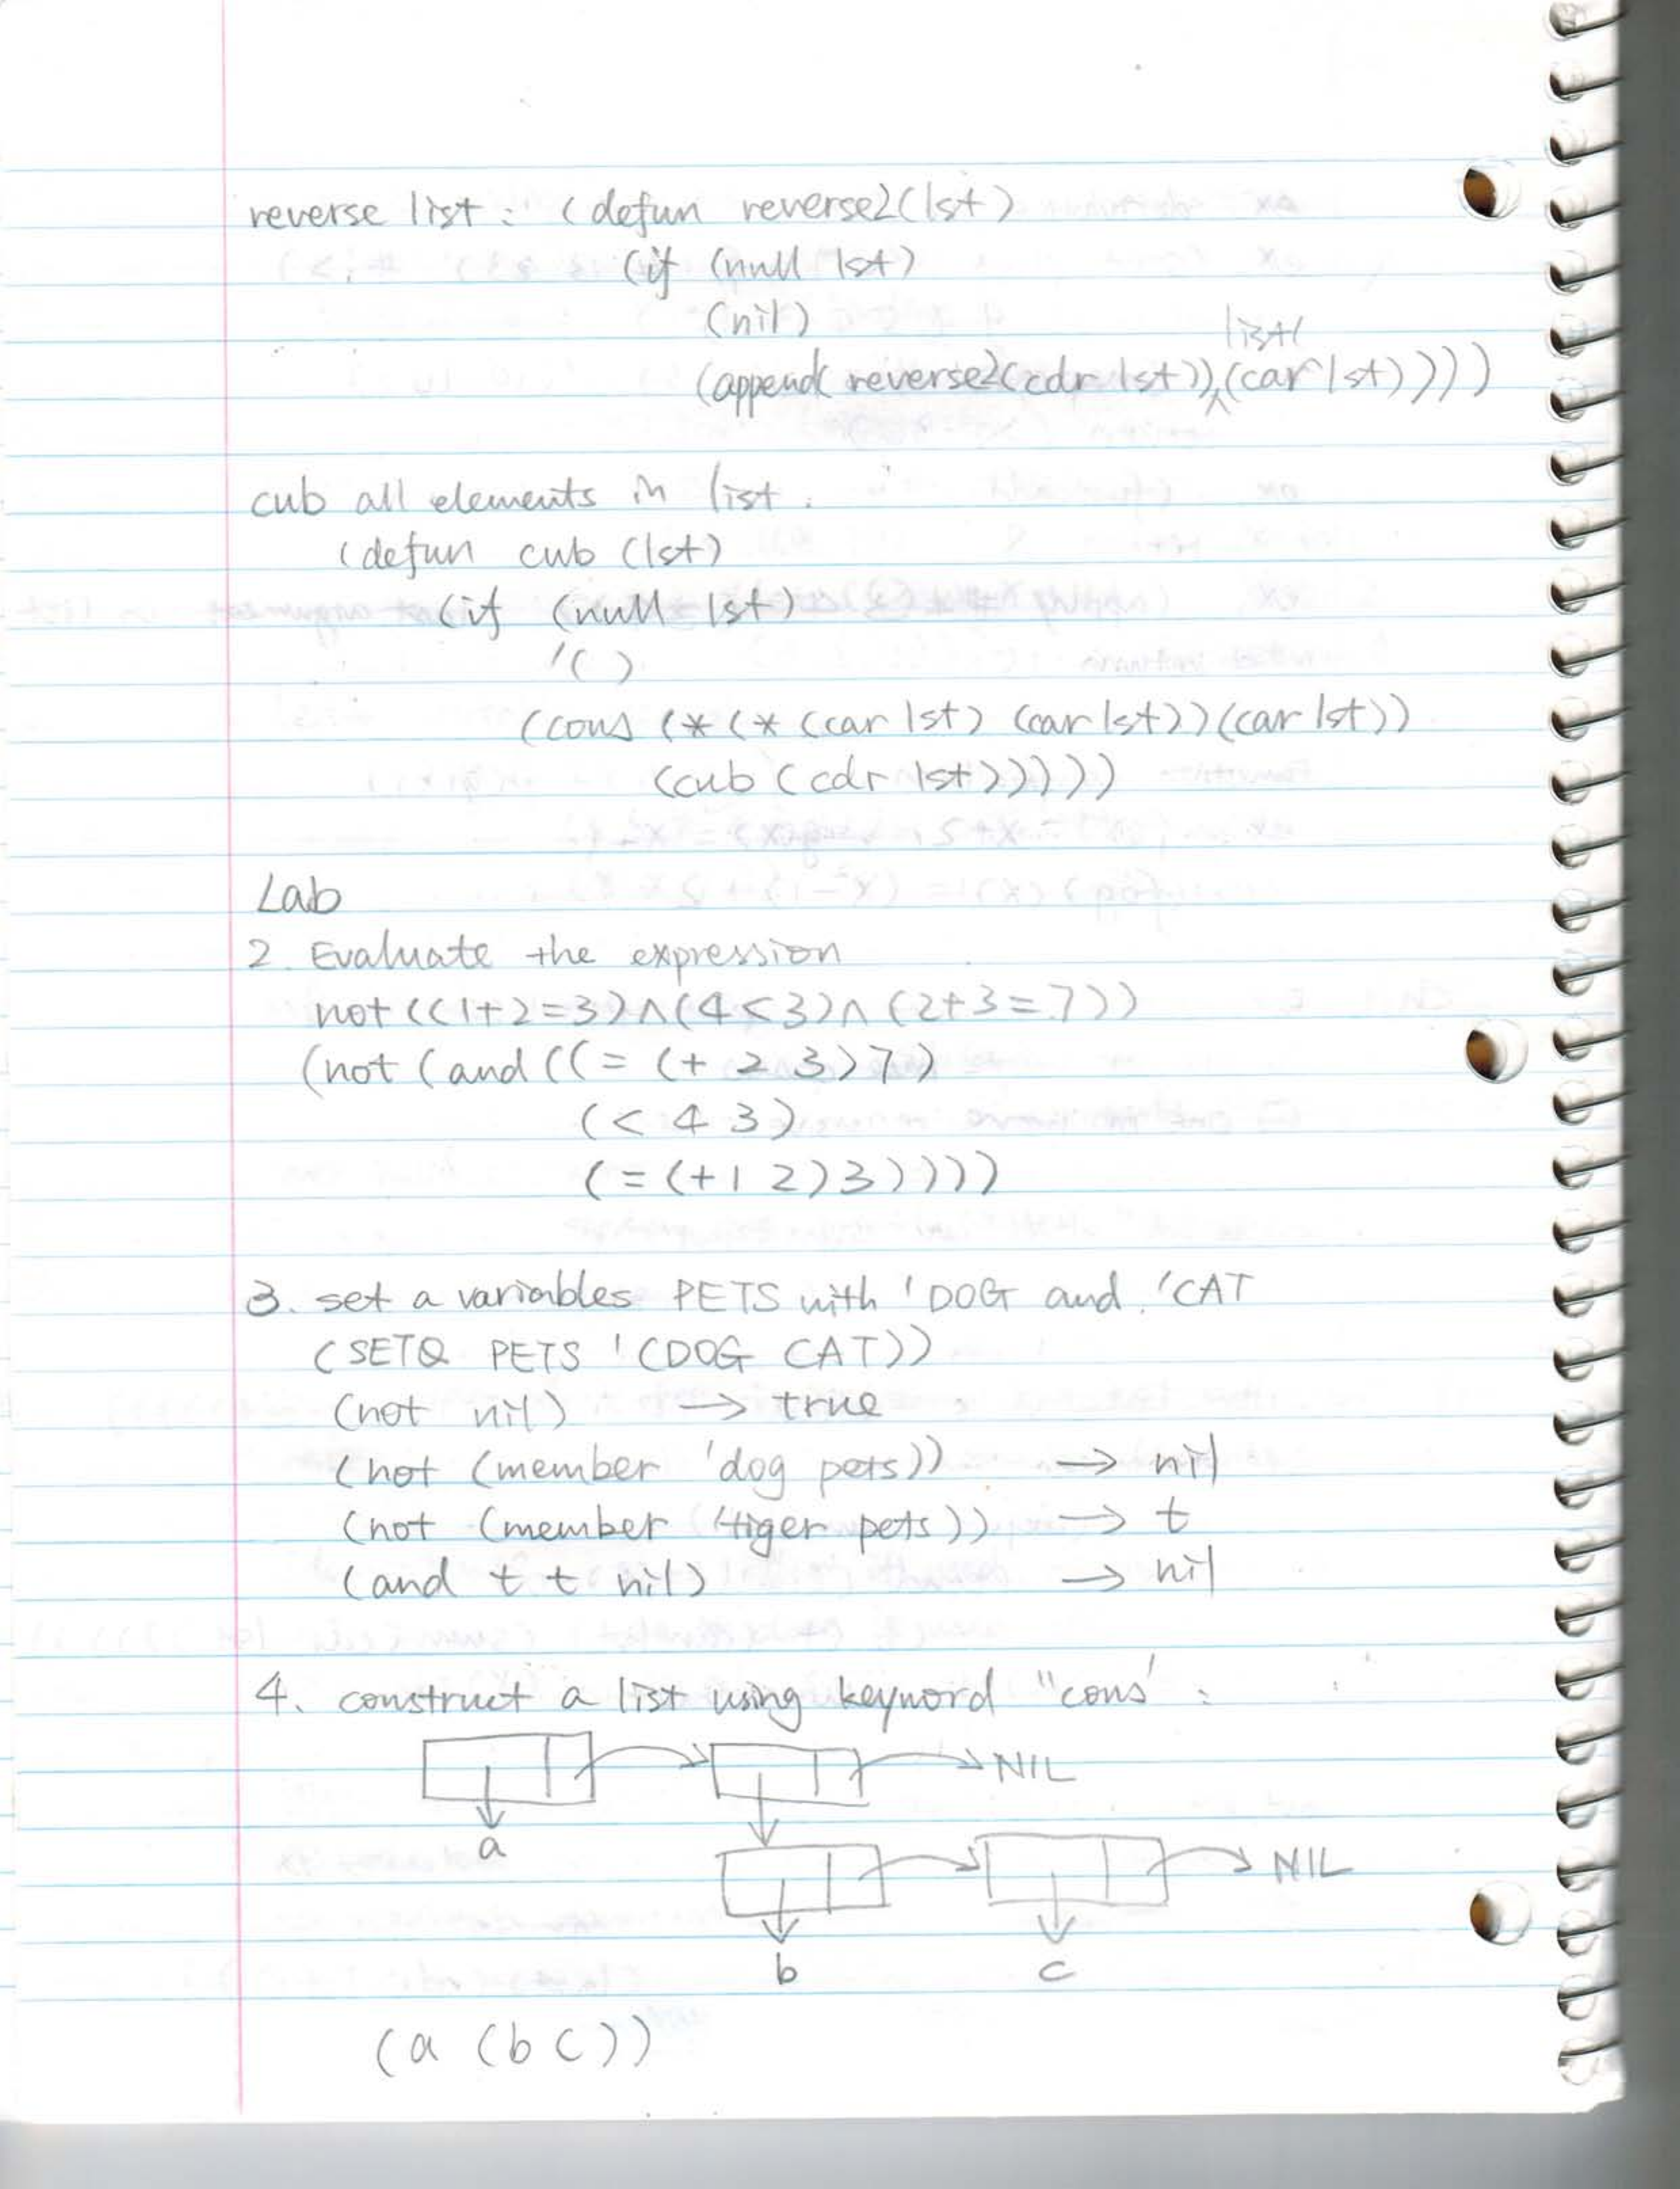 reverse list : (defun reverse2(lst)
(if (null lst)
(nil)
list(
(append( reverse2(cdr lst))^(car lst))))
cub all elements in list :
(defun cub (lst)
(if (null lst)
'( )
(cons (* (* (car lst) (car lst))(car lst))
(cub (cdr lst))))))
Lab
2. Evaluate the expression
not ((1+2=3)∧(4<3)∧(2+3=7))
(not (and ((= (+ 2 3)7)
(< 4 3)
(= (+1 2)3)))))
3. set a variables PETS with 'DOG and 'CAT
(SETQ PETS '(DOG CAT))
(not nil) → true
(not (member 'dog pets)) → nil
(not (member 'tiger pets)) → t
(and t t nil) → nil
4. construct a list using keyword "cons' :
NIL
a
NIL
b c
(a (b c))